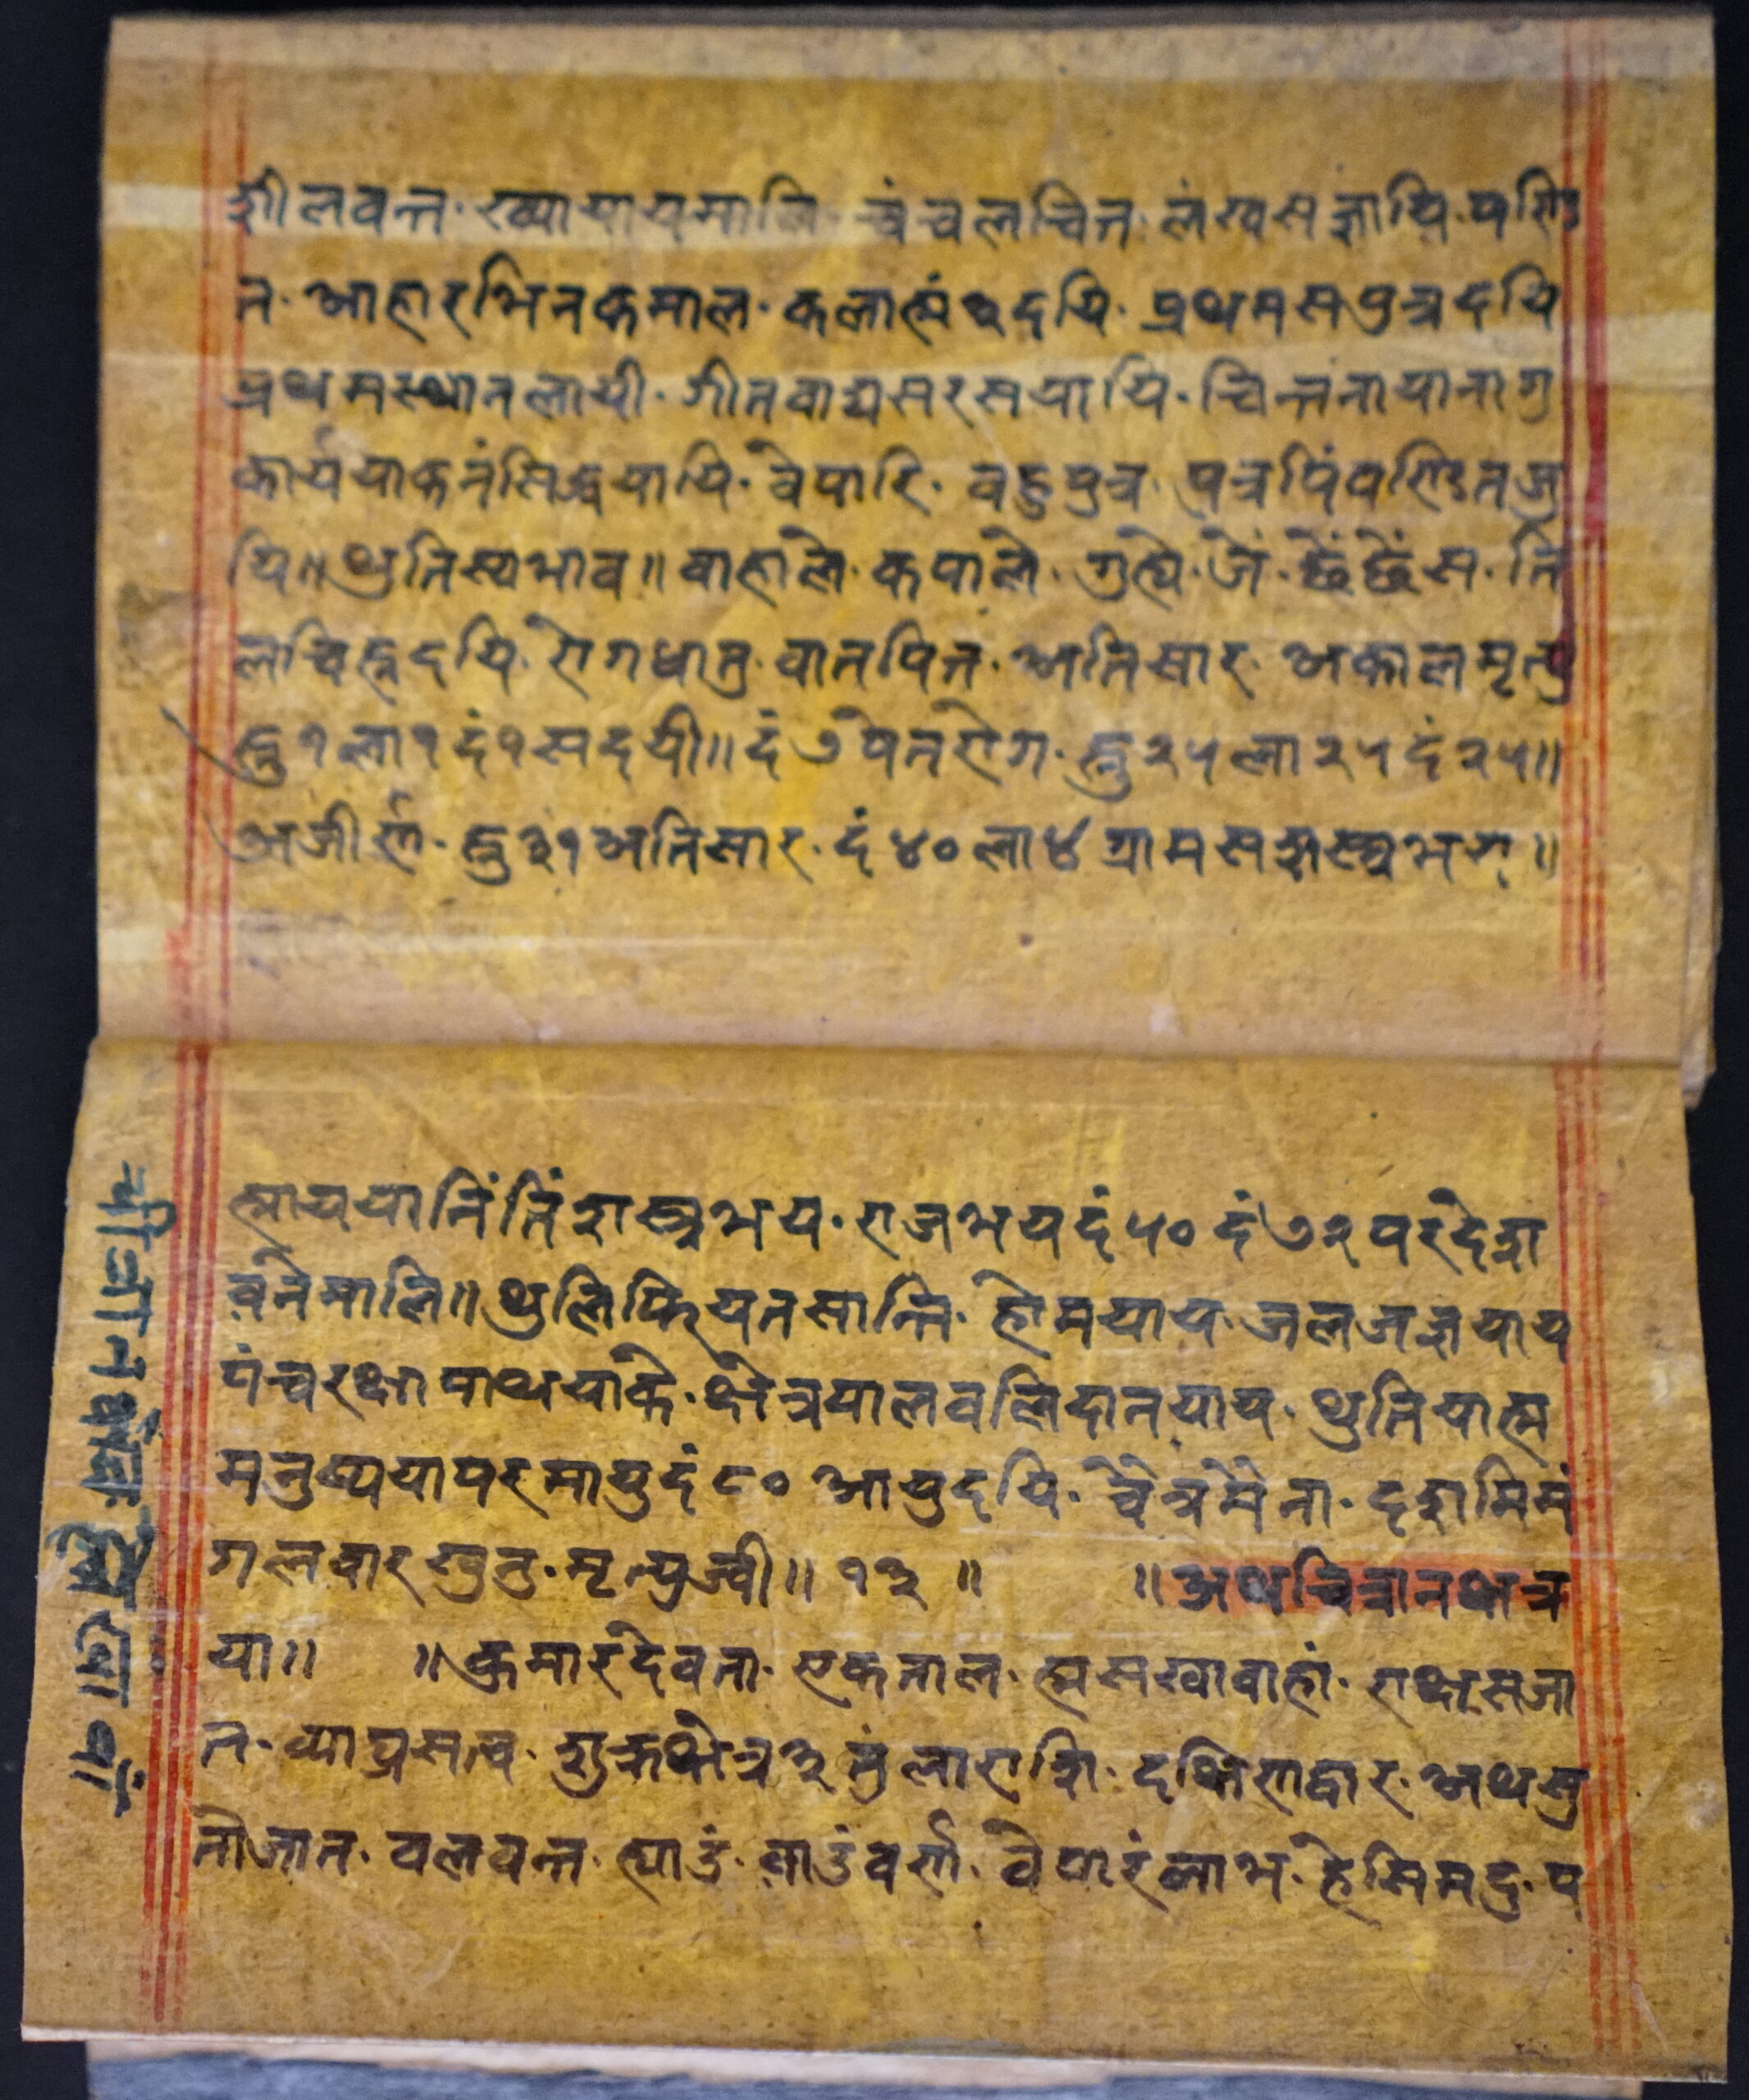 शीलवन्त· ख्यायायमालि· चंचलचित· लंखसज्ञायि· पण्डि
त· आहारभिनकमाल· कलात्मं २ दयि· प्रथमसपुत्रदयि
प्रथमस्थानलायी· गीतवाद्यसरसयायि· चिन्तनायानागु
कार्ययाकनंसिद्धयायि· वेपारि· वहुपुत्र· पुत्रपिंपण्डितजु
यि॥ थुतिस्वभाव॥ वाहाले· कपाले· गुह्ये· जें· छें छेंस· ति
लचिह्नदयि· रोगधातु· वातपित· अतिसार· अकालमृत्यु
ह्नु १ ला १ दं १ सदयी॥ दं ७ पेतरोग· ह्नु २५ ला २५ दं २५॥
अजीर्ण· ह्नु ३१ अतिसार· दं ४० ला ४ ग्रामसशस्त्रभय॥
त्मायया निंतिं शस्त्रभय· राजभय दं ५० दं ७२ परदेश
वनेमालि॥ थुलिफियतसान्ति· होमयाय· जलजज्ञयाय
पंचरक्षापाथयाके· क्षेत्रपालवलिदानयाय· थुतियात्म
मनुष्ययापरमायुदं ८० आयुदयि· चैत्रमैना· दशमिमं
गलवारखुनु· मृत्युज्वी॥ १३ ॥ ॥ अथचित्रानक्षत्र
या॥ ॥ कुमारदेवता· एकताल· त्मसखावाहां· राक्षसजा
त· व्याघ्रसत्व· शुक्रक्षेत्र ३ तुंलाराशि· दक्षिणद्वार· अथसु
तोजात· वलवन्त· त्याउं· वाउंवर्ण· वेपारंलाभ· हेसिमदु· प